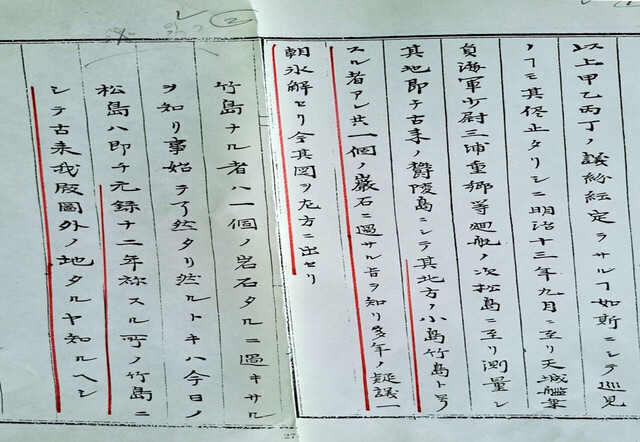 以上甲乙丙丁ノ議紛紜定ラサルヿ如斯ニシテ巡見
ノヿモ其侭止タリシニ明治十三年九月ニ至リ天城艦乗
員海軍少尉三浦重郷等廻航ノ次松島ニ至リ測量シ
其地即チ古来ノ鬱陵島ニシテ其北方ノ小島竹島ト号
スル者アレ共一個ノ巌石ニ過サル旨ヲ知リ多年ノ疑議一
朝氷解セリ今其図ヲ左方ニ出セリ
2
竹島ナル者ハ一個ノ岩石タルニ過キサル
ヲ知リ事始テ了然タリ然ルトキハ今日ノ
松島ハ即チ元録十二年称スル所ノ竹島ニ
シテ古来我版圖外ノ地タルヤ知ルヘシ
27